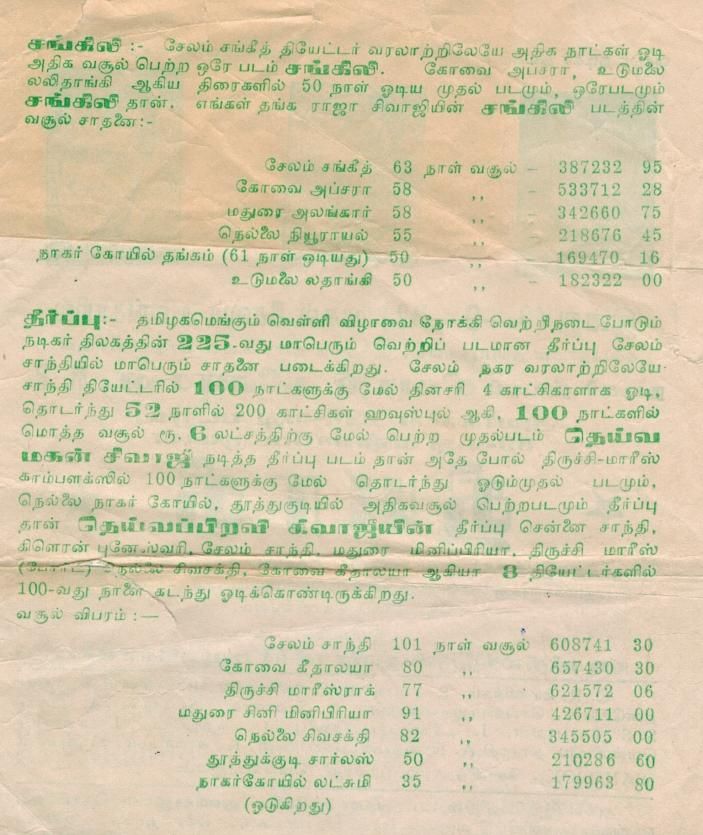 சங்கிலி :- சேலம் சங்கீத் தியேட்டர் வரலாற்றிலேயே அதிக நாட்கள் ஓடி
அதிக வசூல் பெற்ற ஒரே படம் சங்கிலி. கோவை அப்சரா, உடுமலை
லலிதாங்கி ஆகிய திரைகளில் 50 நாள் ஓடிய முதல் படமும், ஒரேபடமும்
சங்கிலி தான். எங்கள் தங்க ராஜா சிவாஜியின் சங்கிலி படத்தின்
வசூல் சாதனை:-
சேலம் சங்கீத் 63 நாள் வசூல் - 387232 95
கோவை அப்சரா 58 ,, - 533712 28
மதுரை அலங்கார் 58 ,, - 342660 75
நெல்லை நியூராயல் 55 ,, - 218676 45
நாகர் கோயில் தங்கம் (61 நாள் ஓடியது) 50 ,, - 169470 16
உடுமலை லதாங்கி 50 ,, - 182322 00
தீர்ப்பு:- தமிழகமெங்கும் வெள்ளி விழாவை நோக்கி வெற்றிநடை போடும்
நடிகர் திலகத்தின் 225-வது மாபெரும் வெற்றிப் படமான தீர்ப்பு சேலம்
சாந்தியில் மாபெரும் சாதனை படைக்கிறது. சேலம் நகர வரலாற்றிலேயே
சாந்தி தியேட்டரில் 100 நாட்களுக்கு மேல் தினசரி 4 காட்சிகாளாக ஓடி,
தொடர்ந்து 52 நாளில் 200 காட்சிகள் ஹவுஸ்புல் ஆகி, 100 நாட்களில்
மொத்த வசூல் ரூ. 6 லட்சத்திற்கு மேல் பெற்ற முதல்படம் தெய்வ
மகன் சிவாஜி நடித்த தீர்ப்பு படம் தான் அதே போல் திருச்சி-மாரீஸ்
காம்பளக்ஸில் 100 நாட்களுக்கு மேல் தொடர்ந்து ஓடும்முதல் படமும்,
நெல்லை நாகர் கோயில், தூத்துகுடியில் அதிகவசூல் பெற்றபடமும் தீர்ப்பு
தான் தெய்வப்பிறவி சிவாஜியின் தீர்ப்பு சென்னை சாந்தி,
கிளௌன் புனேஸ்வரி, சேலம் சாந்தி, மதுரை மினிப்பிரியா, திருச்சி மாரீஸ்
நெல்லை சிவசக்தி, கோவை கீதாலயா ஆகியா 8 தியேட்டர்களில்
100-வது நாளை கடந்து ஓடிக்கொண்டிருக்கிறது.
வசூல் விபரம் :—
சேலம் சாந்தி 101 நாள் வசூல் 608741 30
கோவை கீதாலயா 80 ,, 657430 30
திருச்சி மாரீஸ்ராக் 77 ,, 621572 06
மதுரை சினி மினிபிரியா 91 ,, 426711 00
நெல்லை சிவசக்தி 82 ,, 345505 00
தூத்துக்குடி சார்லஸ் 50 ,, 210286 60
நாகர்கோயில் லட்சுமி 35 ,, 179963 80
(ஓடுகிறது)